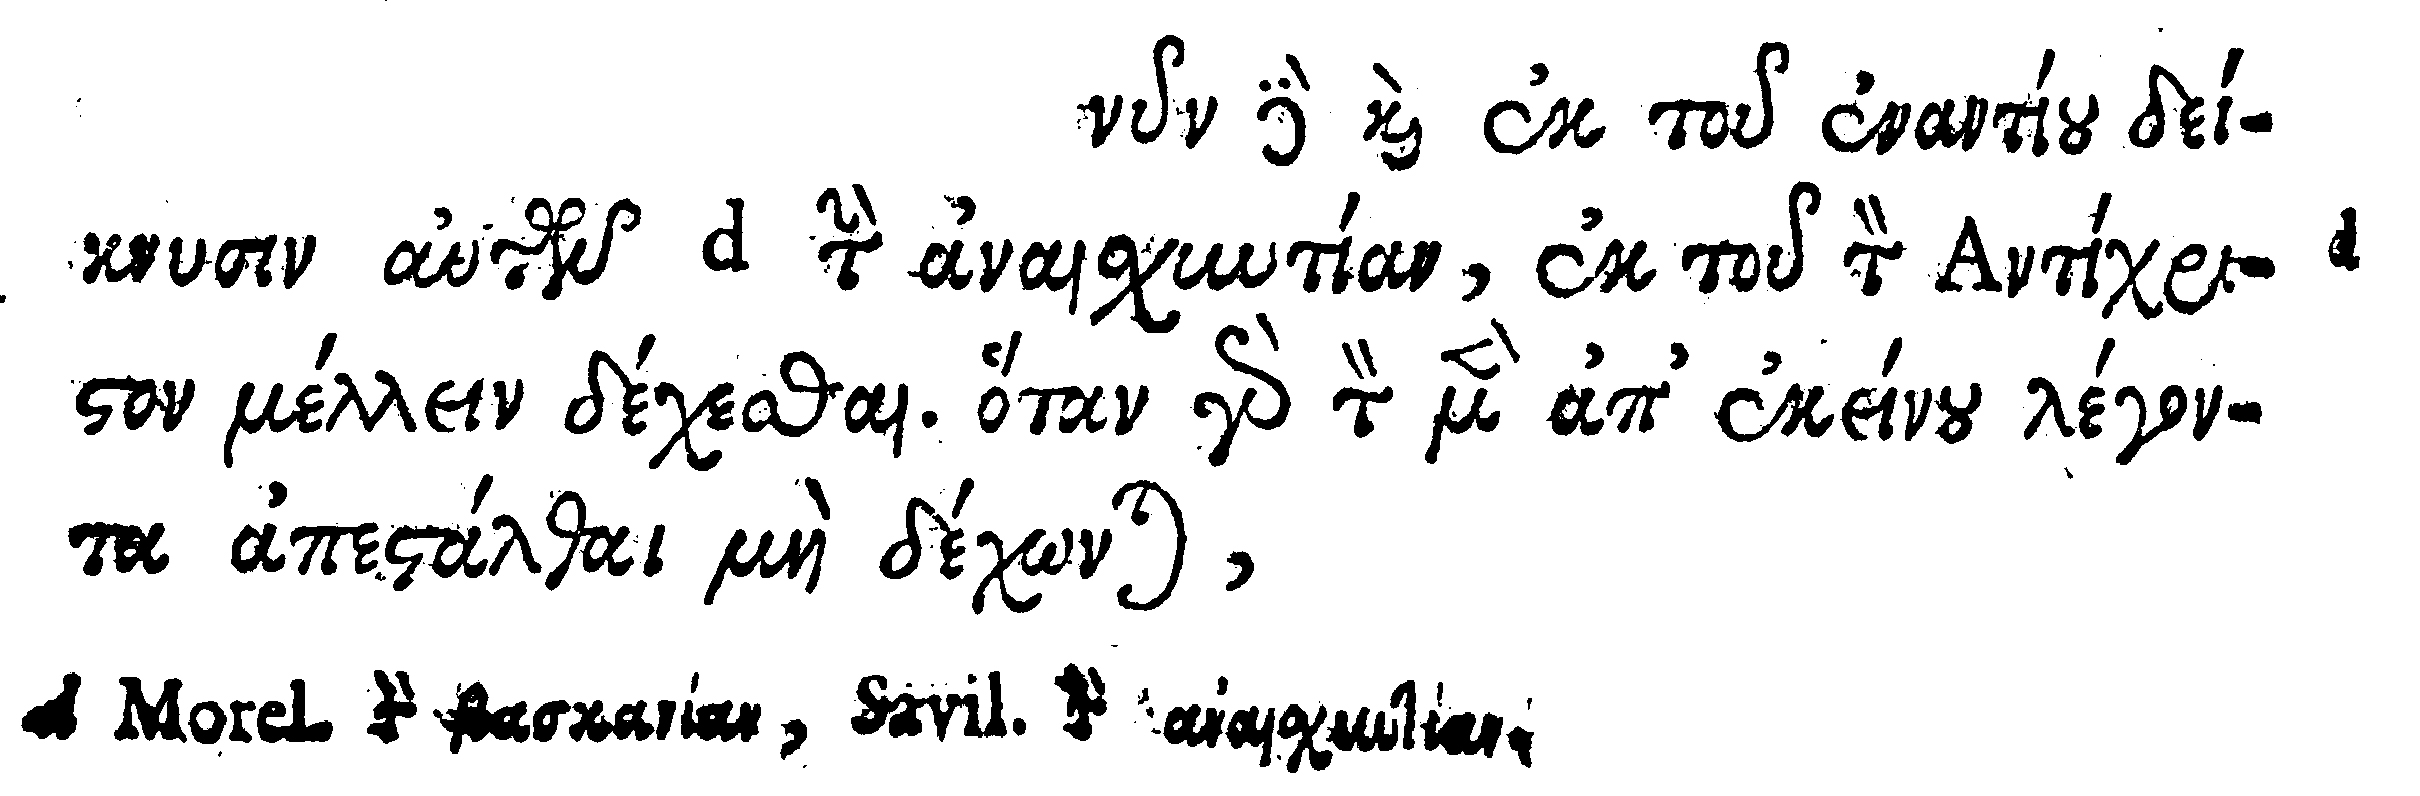 νῦν δὲ καὶ ἐκ τοῦ ἐναντίου δεί-
κνυσιν αὐτῶν d τὴν ἀναισχυντίαν, ἐκ τοῦ τὸν Ἀντίχρι- d
στον μέλλειν δέχεσθαι. ὅταν γὰρ τὸν μὲν ἀπ' ἐκείνου λέγον-
τα ἀπεστάλθαι μὴ δέχωνται,
d Morel. τὴν βασκανίαν, Savil. τὴν ἀναισχυντίαν.